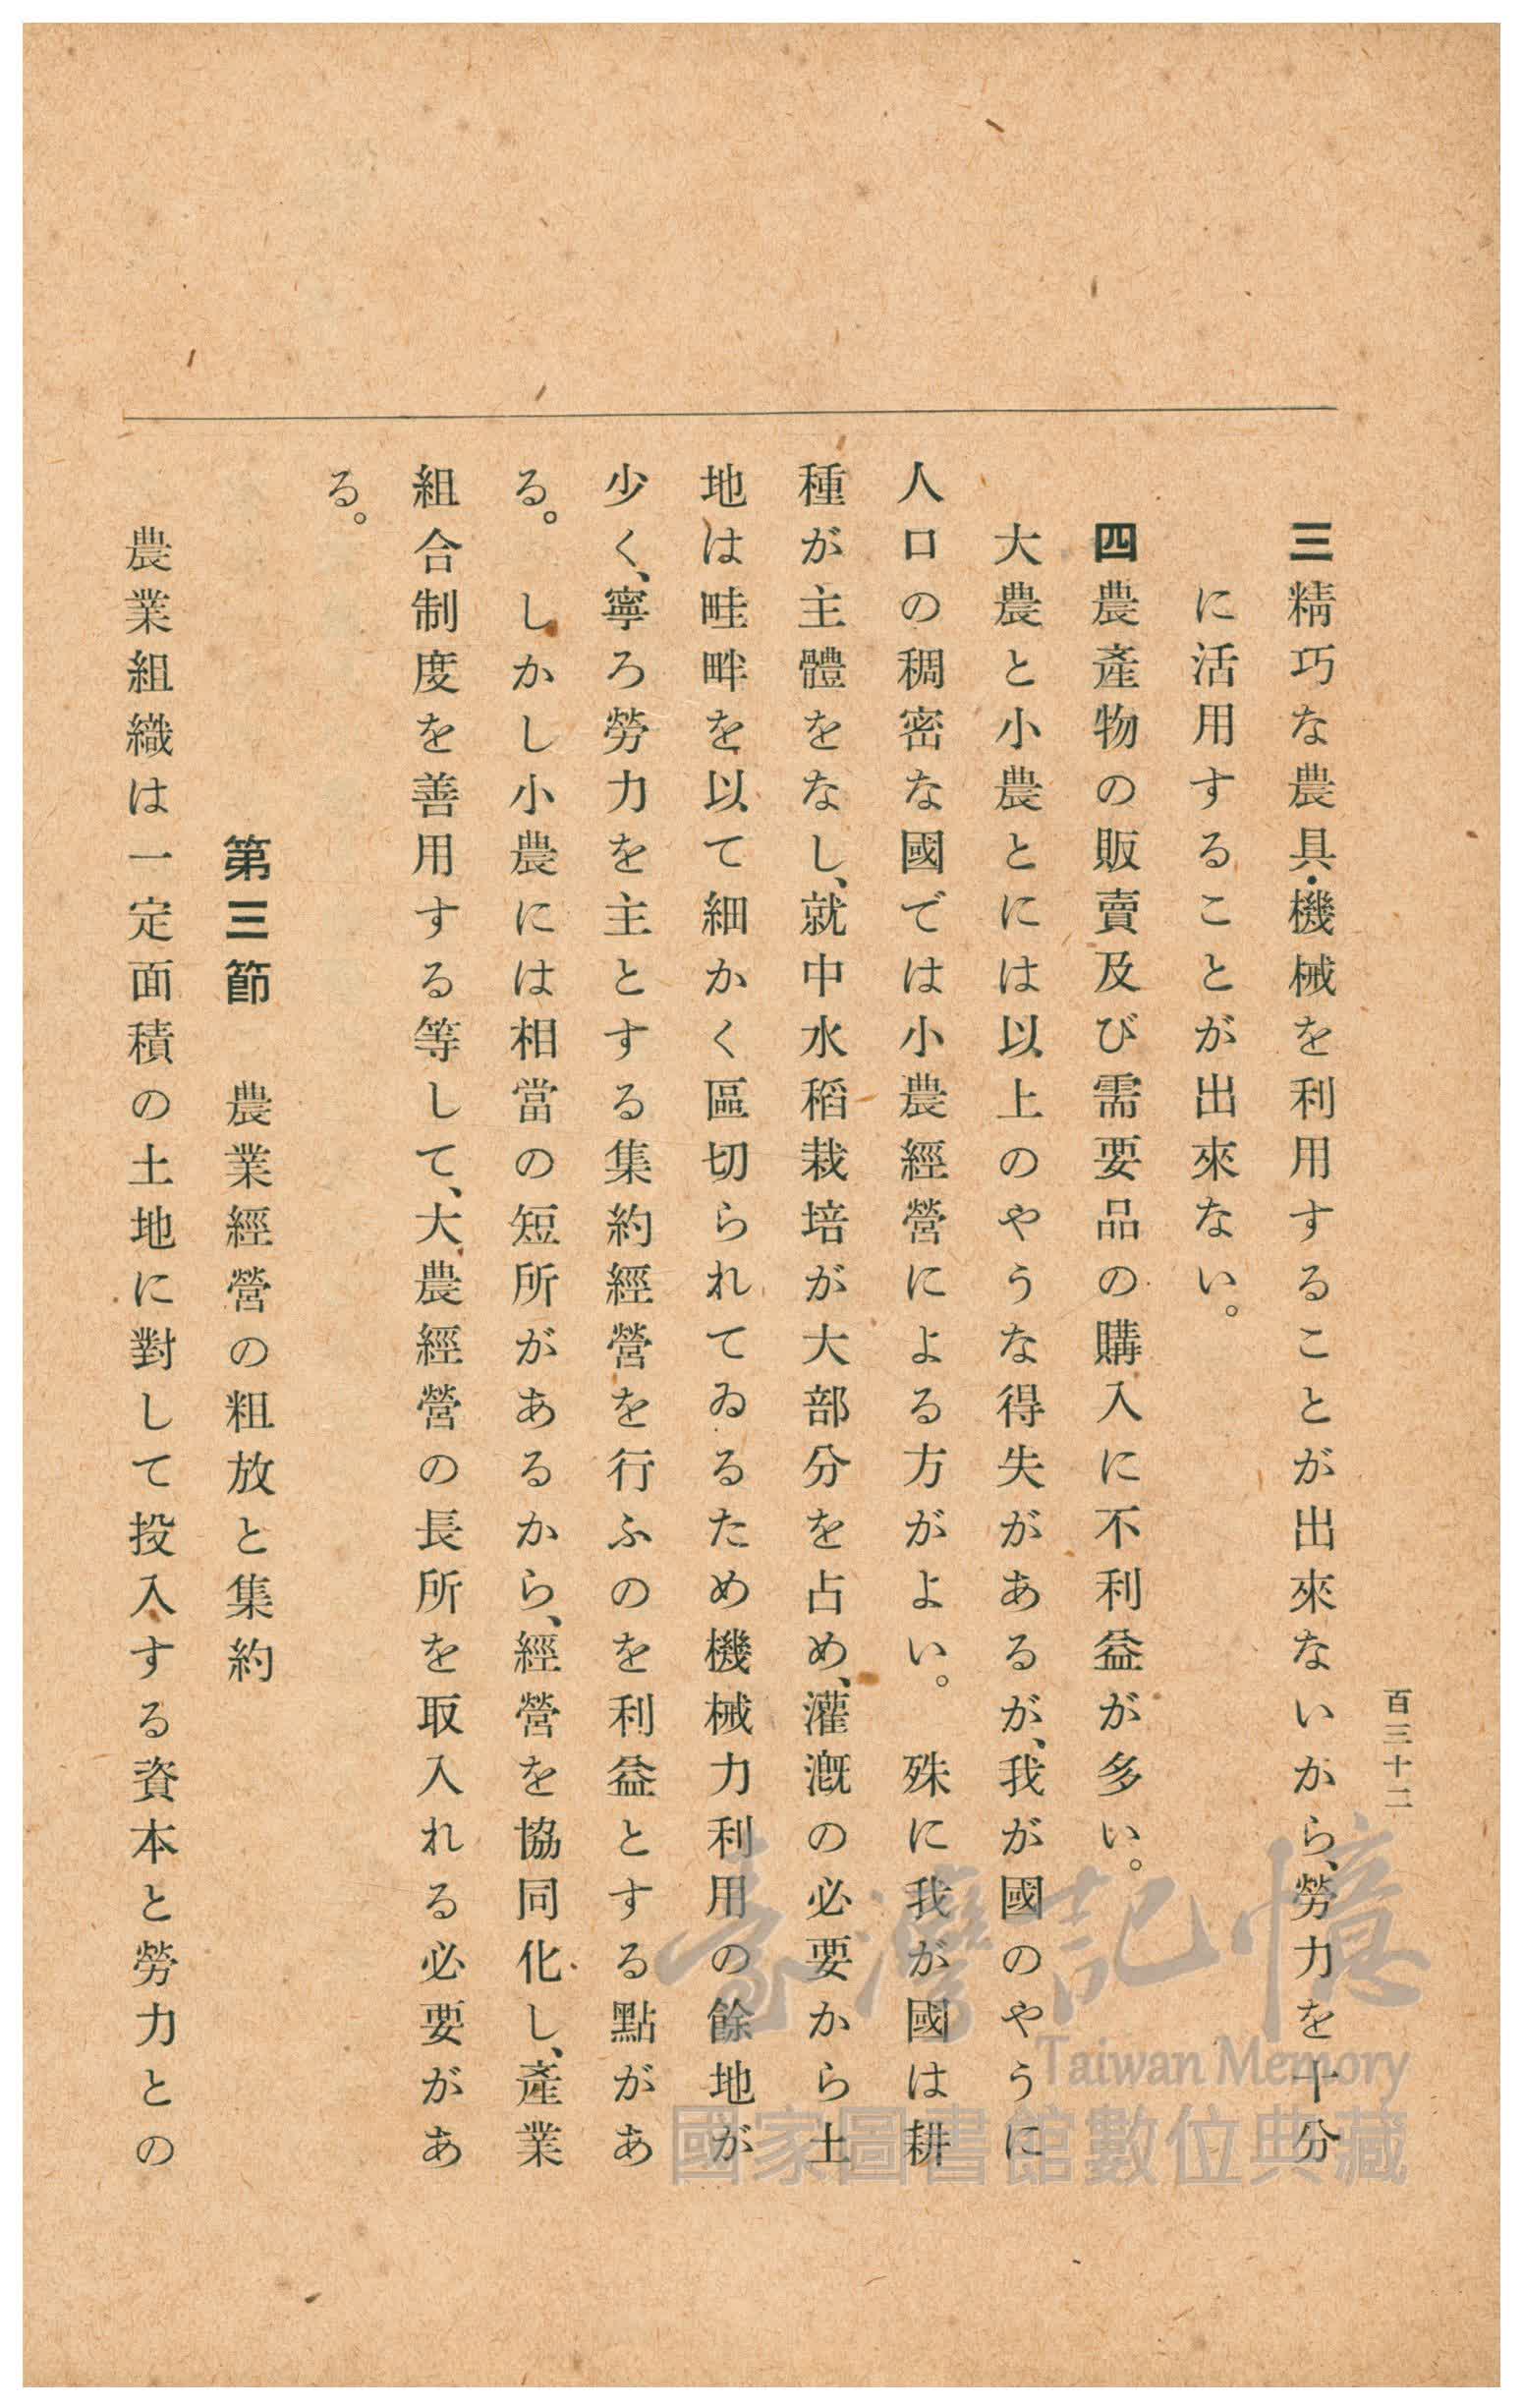 百三十二
三 精巧な農具・機械を利用することが出來ないから、勞力を十分
に活用することが出來ない。
四 農產物の販賣及び需要品の購入に不利益が多い。
大農と小農とには以上のやうな得失があるが、我が國のやうに
人口の稠密な國では小農經營による方がよい。殊に我が國は耕
種が主體をなし、就中水稻栽培が大部分を占め、灌漑の必要から土
地は畦畔を以て細かく區切られてゐるため機械力利用の餘地が
少く、寧ろ勞力を主とする集約經營を行ふのを利益とする點があ
る。しかし小農には相當の短所があるから、經營を協同化し、產業
組合制度を善用する等して、大農經營の長所を取入れる必要があ
る。
第三節 農業經營の粗放と集約
農業組織は一定面積の土地に對して投入する資本と勞力との
臺灣記憶
Taiwan Memory
國家圖書館數位典藏